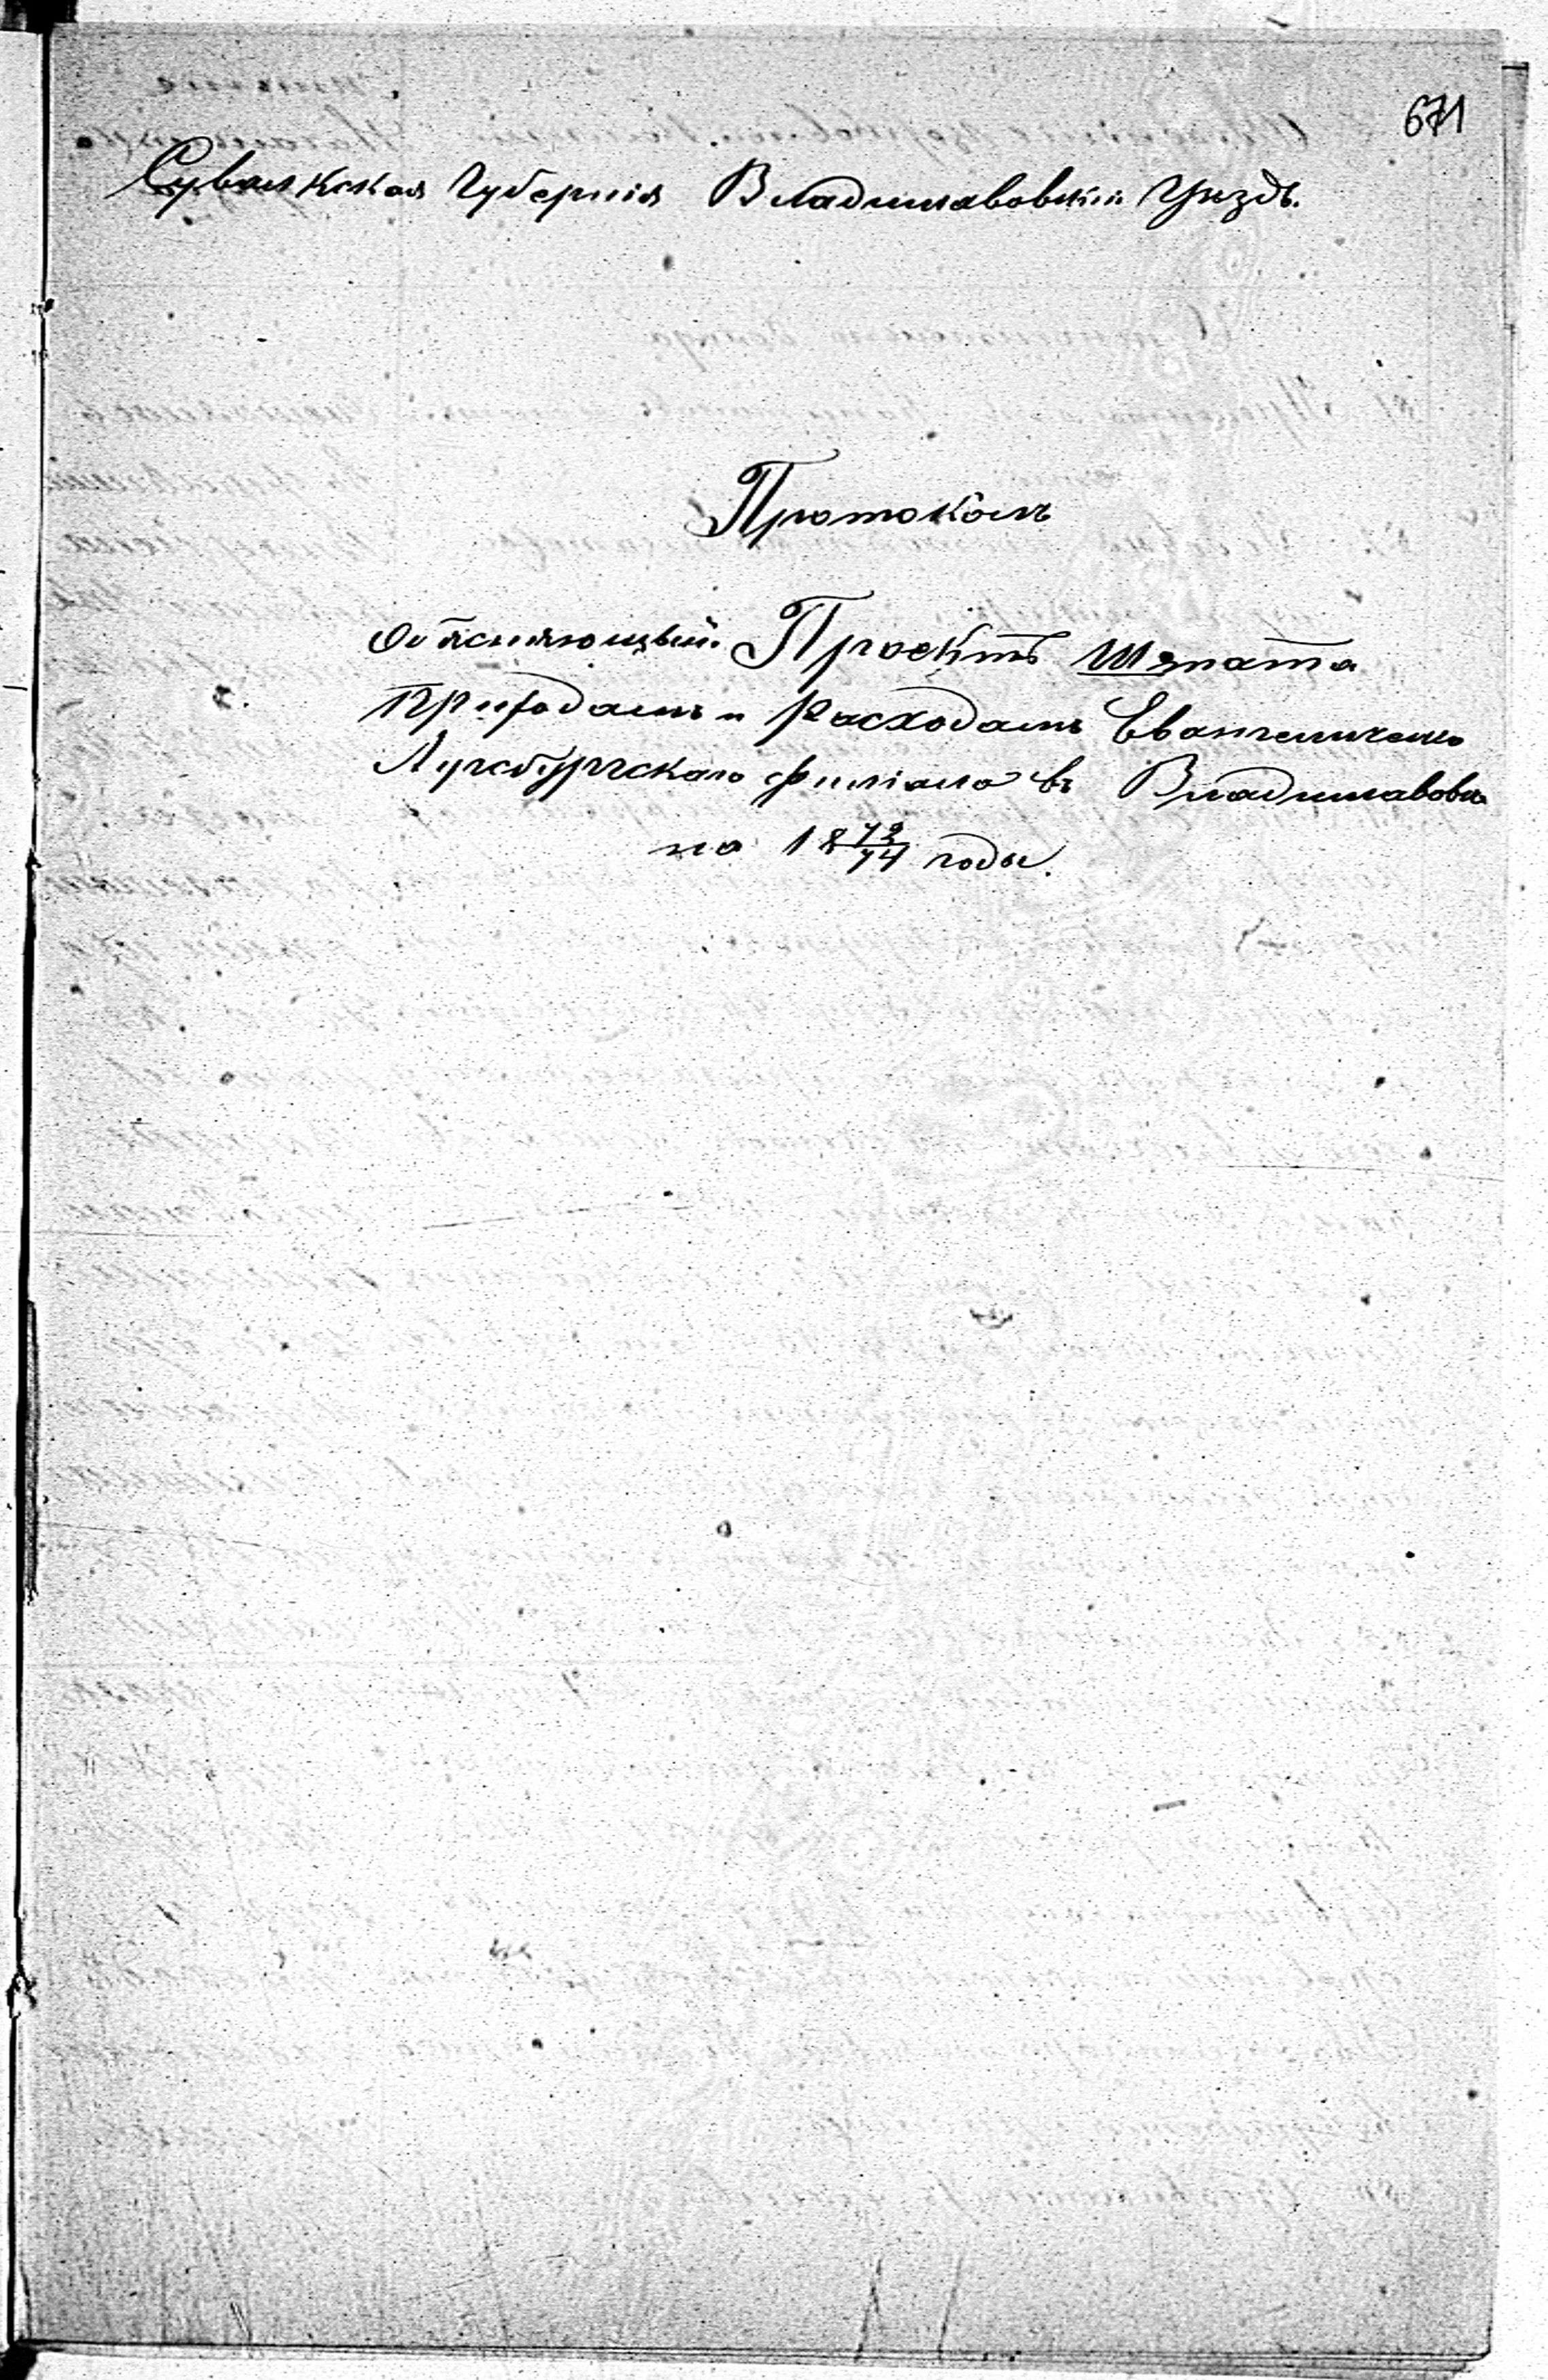 671
Сувалкская Губернія Владиславовскій Уѣздъ.
Протоколъ
Объясняющый Проектъ Штата
Приходамъ и Расходамъ Евангелическо
Аугсбургскаго филіала въ Владиславовѣ
на 1872/74 годы.